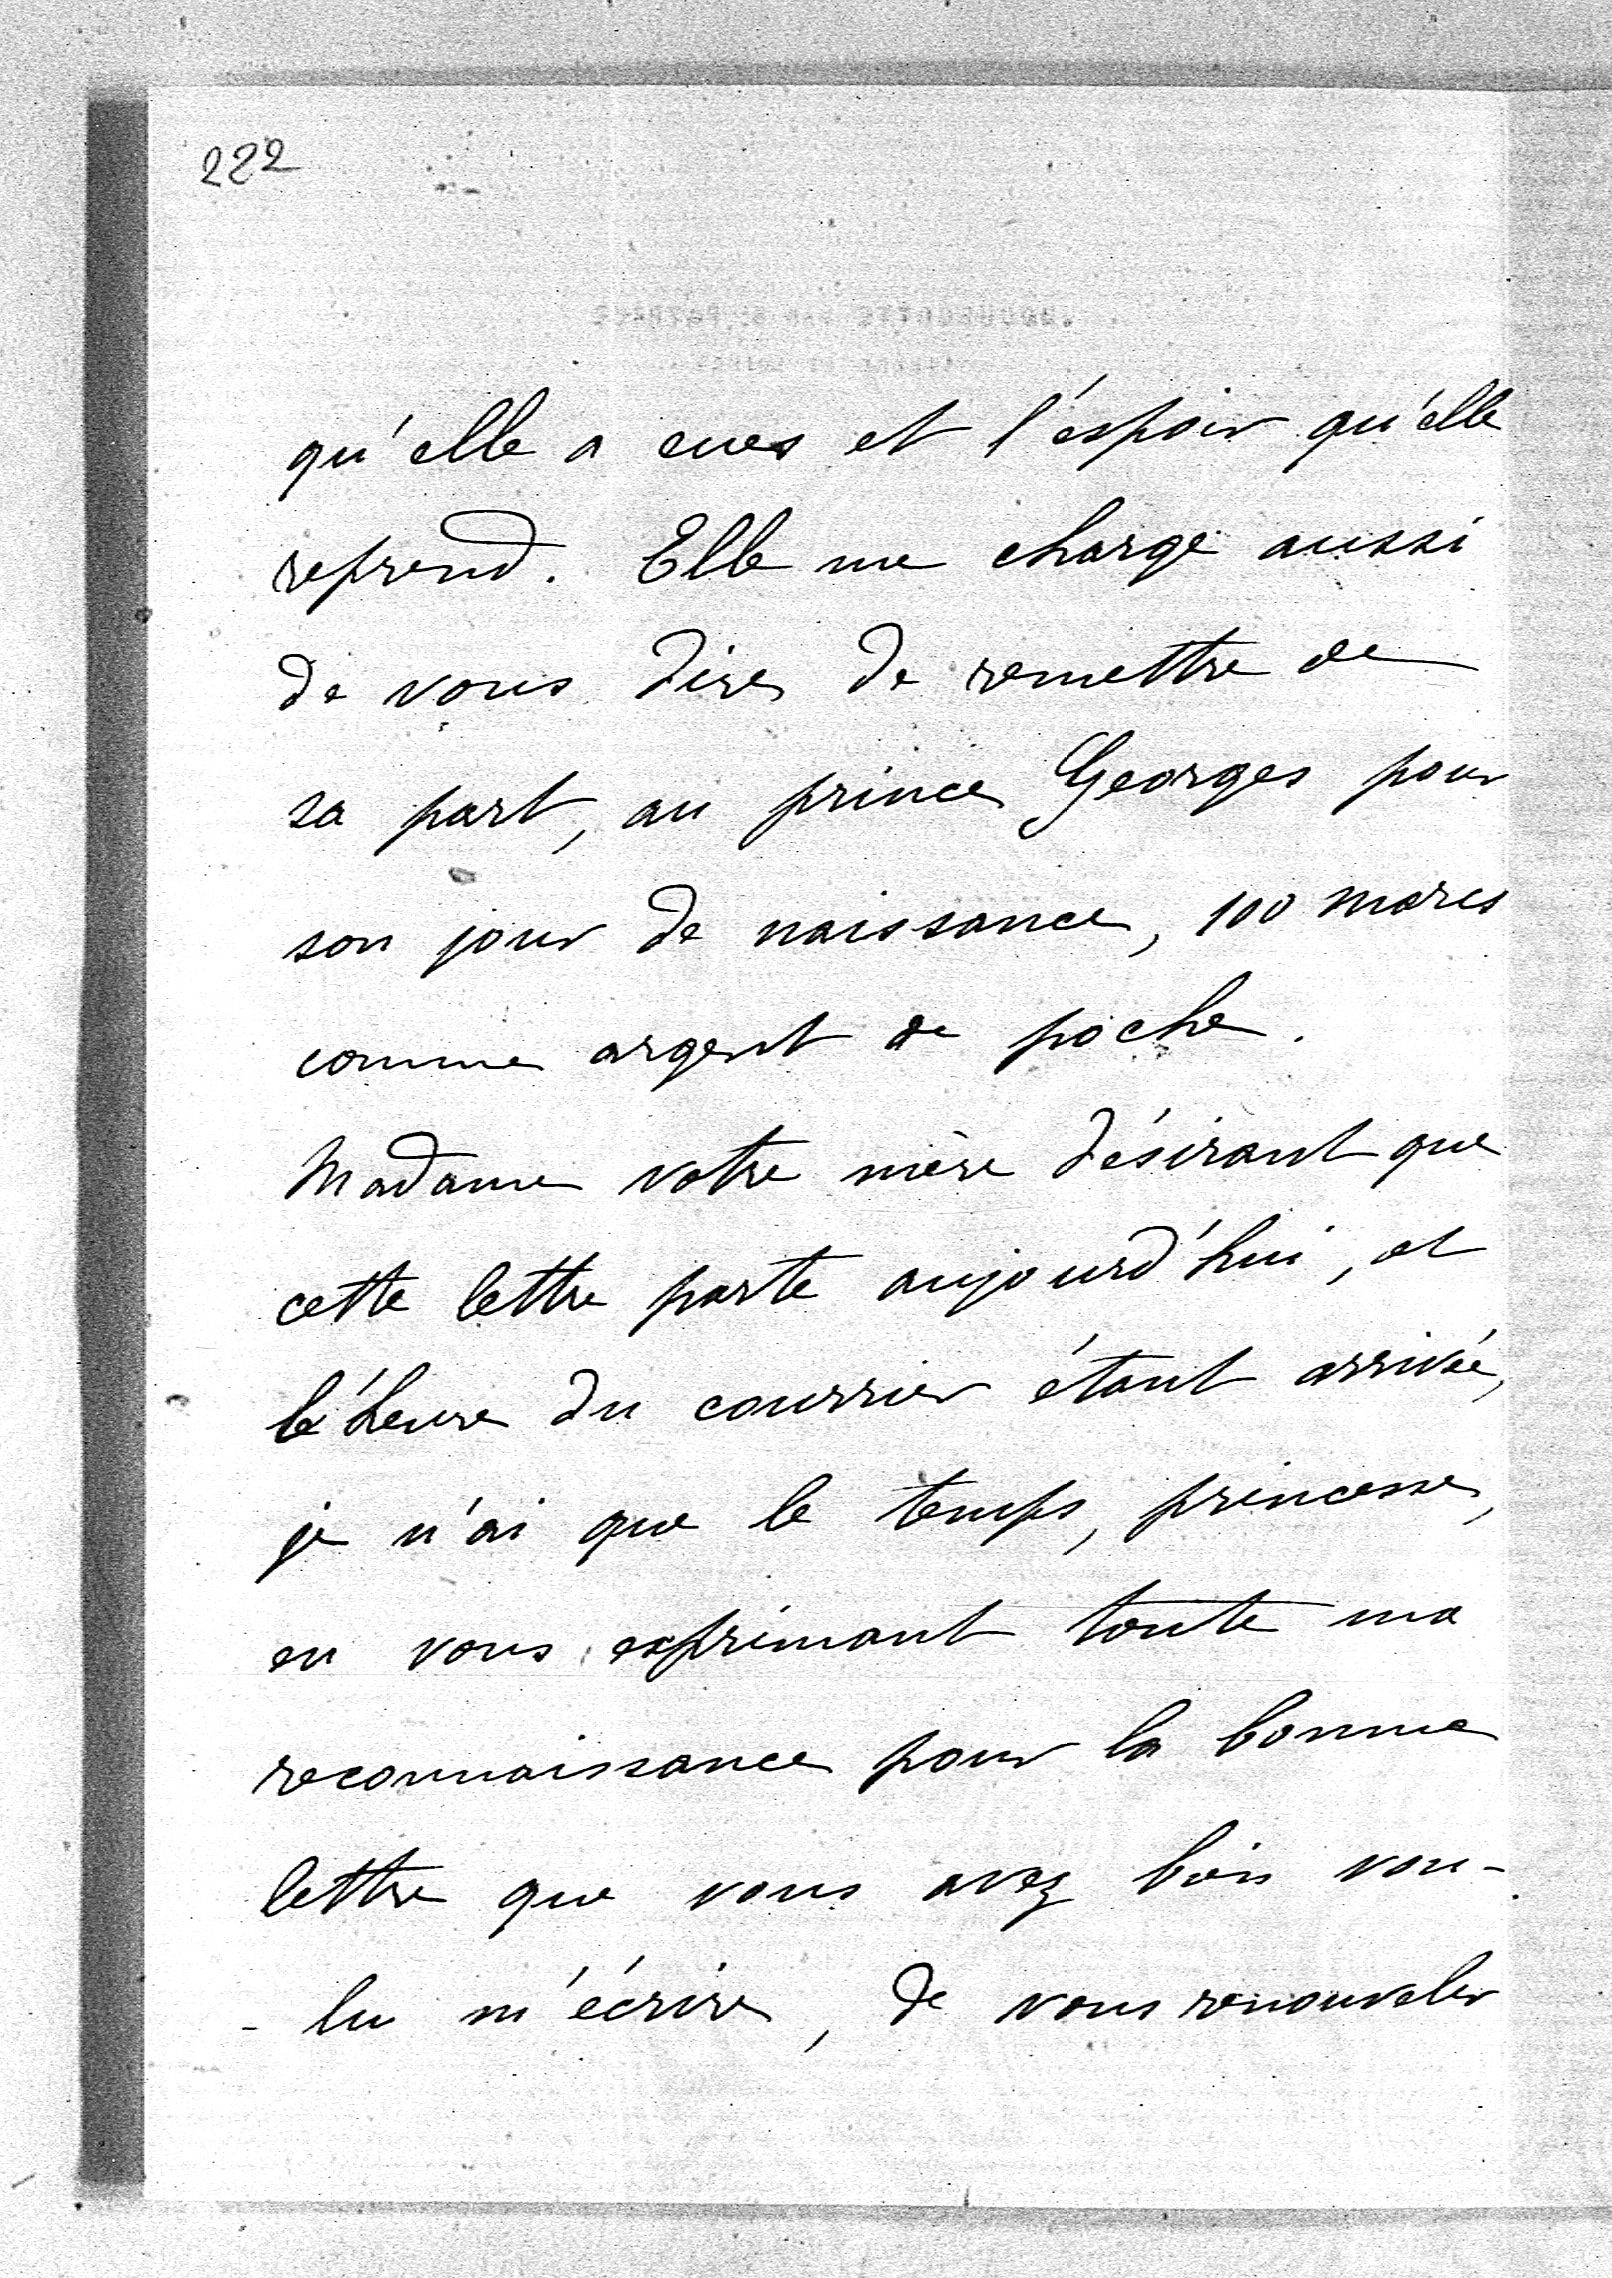 222
qu'elle a eues et l'espoir qu'elle
reprend. Elle me charge aussi
de vous dire de remettre de
sa part, au prince Georges pour
son jour de naissance, 100 marcs
comme argent de poche.
Madame votre mère désirant que
cette lettre parte aujourd'hui, et
l'heure du courrier étant arrivée,
je n'ai que le temps, princesse,
en vous exprimant toute ma
reconnaissance pour la bonne
lettre que vous avez bien vou-
- lu m'écrire, de vous renouveler